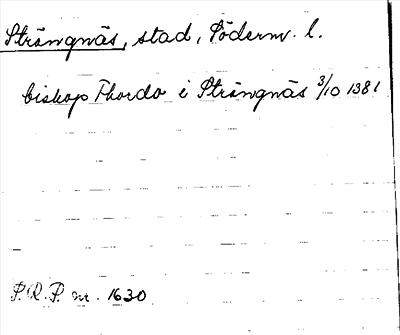 Strängnäs, stad, Söderm. l.
biskop Thordo i Strängnäs 3/10 1381
P.R.P. nr. 1630